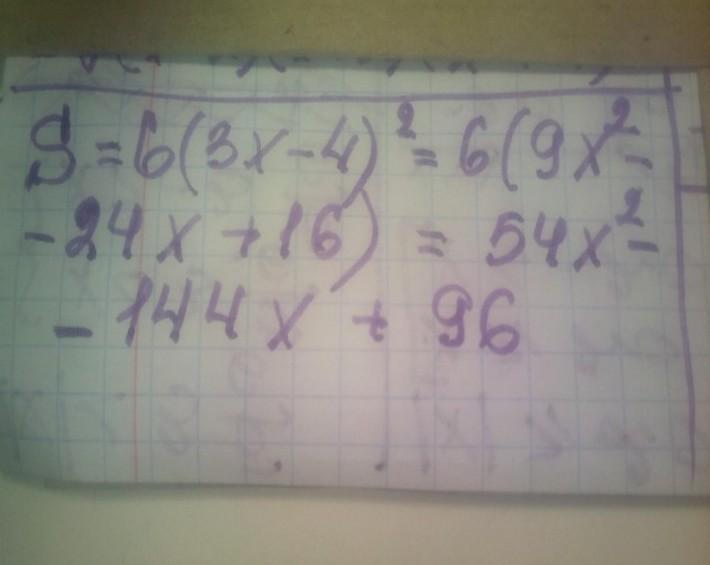 S = 6(3x - 4)² = 6(9x² -
- 24x + 16) = 54x² -
- 144x + 96